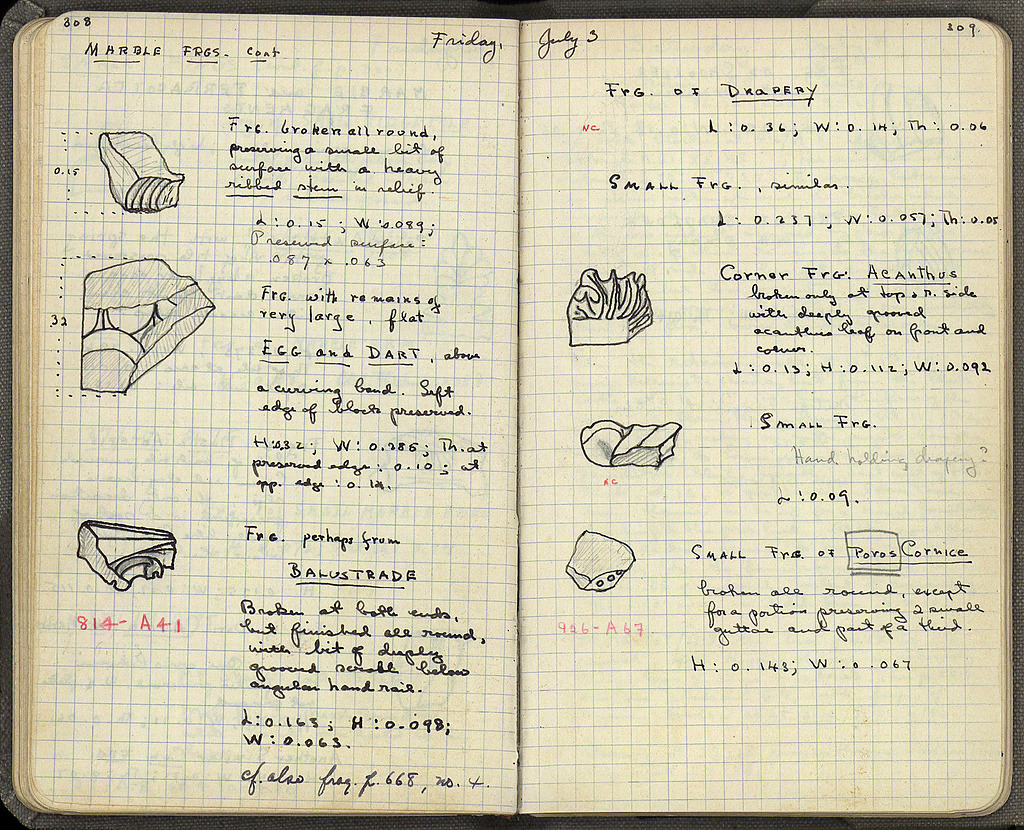 308
Friday,
MARBLE FRGS. Cont
Frg. broken all round,
preserving a small bit of
surface with a heavy
ribbed stem in relief.
0.15
L: 0.15; W: 0.089;
Preserved surface:
.087 x .063
Frg. with remains of
very large, flat
32
EGG and DART, above
a curving band. Left
edge of block preserved.
H: 0.32; W: 0.285; Th. at
preserved edge: 0.10; at
opp. edge: 0.14.
Frg. perhaps from
BALUSTRADE
814-A41
Broken at both ends,
but finished all round,
with bit of deeply
grooved scroll below
angular hand rail.
L: 0.163; H: 0.098;
W: 0.063.
cf. also frag. p. 668, no. 4.
309.
July 3
Frg. of DRAPERY
NC
L: 0.36; W: 0.14; Th: 0.06
SMALL Frg., similar.
L: 0.237; W: 0.057; Th: 0.05
Corner Frg. Acanthus
broken only at top & r. side
with deeply grooved
acanthus leaf on front and
corner.
L: 0.13; H: 0.112; W: 0.092
SMALL Frg.
Hand holding drapery?
NC
L: 0.09.
SMALL Frg. of Poros Cornice
broken all round, except
for a portion preserving 2 small
guttae and part of a third.
926-A67
H: 0.143; W: 0.067